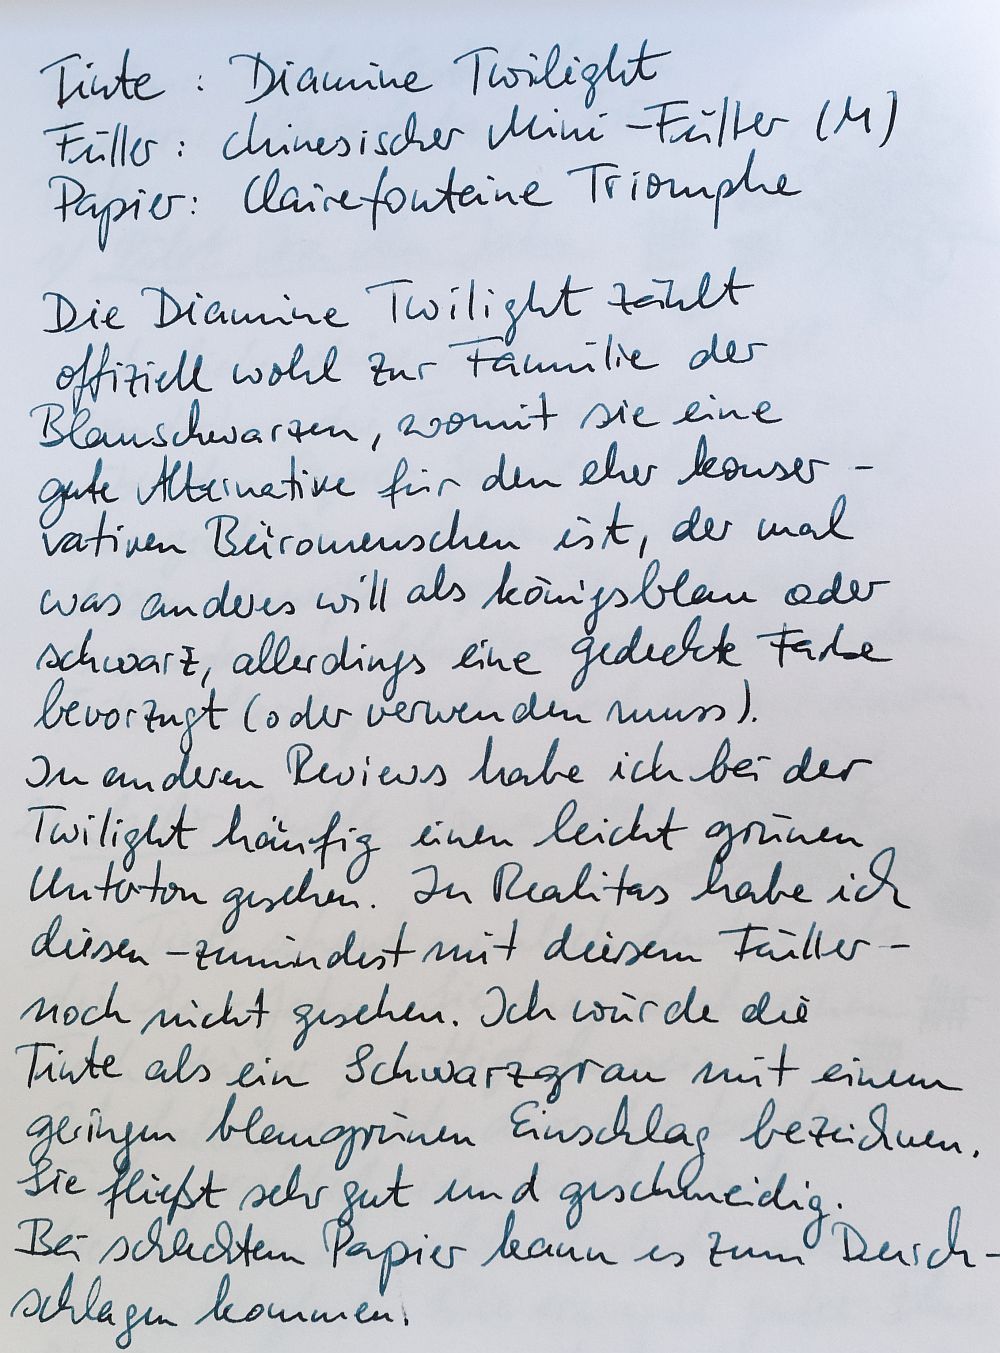 Tinte : Diamine Twilight
Füller : chinesischer Mini-Füller (M)
Papier : Clairefonteine Triomphe
Die Diamine Twilight zählt
offiziell wohl zur Familie der
Blauschwarzen, womit sie eine
gute Alternative für den eher konser-
vativen Büromenschen ist, der mal
was anderes will als königsblau oder
schwarz, allerdings eine gedeckte Farbe
bevorzugt (oder verwenden muss).
In anderen Reviews habe ich bei der
Twilight häufig einen leicht grünen
Unterton gesehen. In Realitas habe ich
diesen - zumindest mit diesem Füller -
noch nicht gesehen. Ich würde die
Tinte als ein Schwarzgrau mit einem
geringen blaugrünen Einschlag bezeichnen.
Sie fließt sehr gut und geschmeidig.
Bei schlechtem Papier kann es zum Durch-
schlagen kommen.